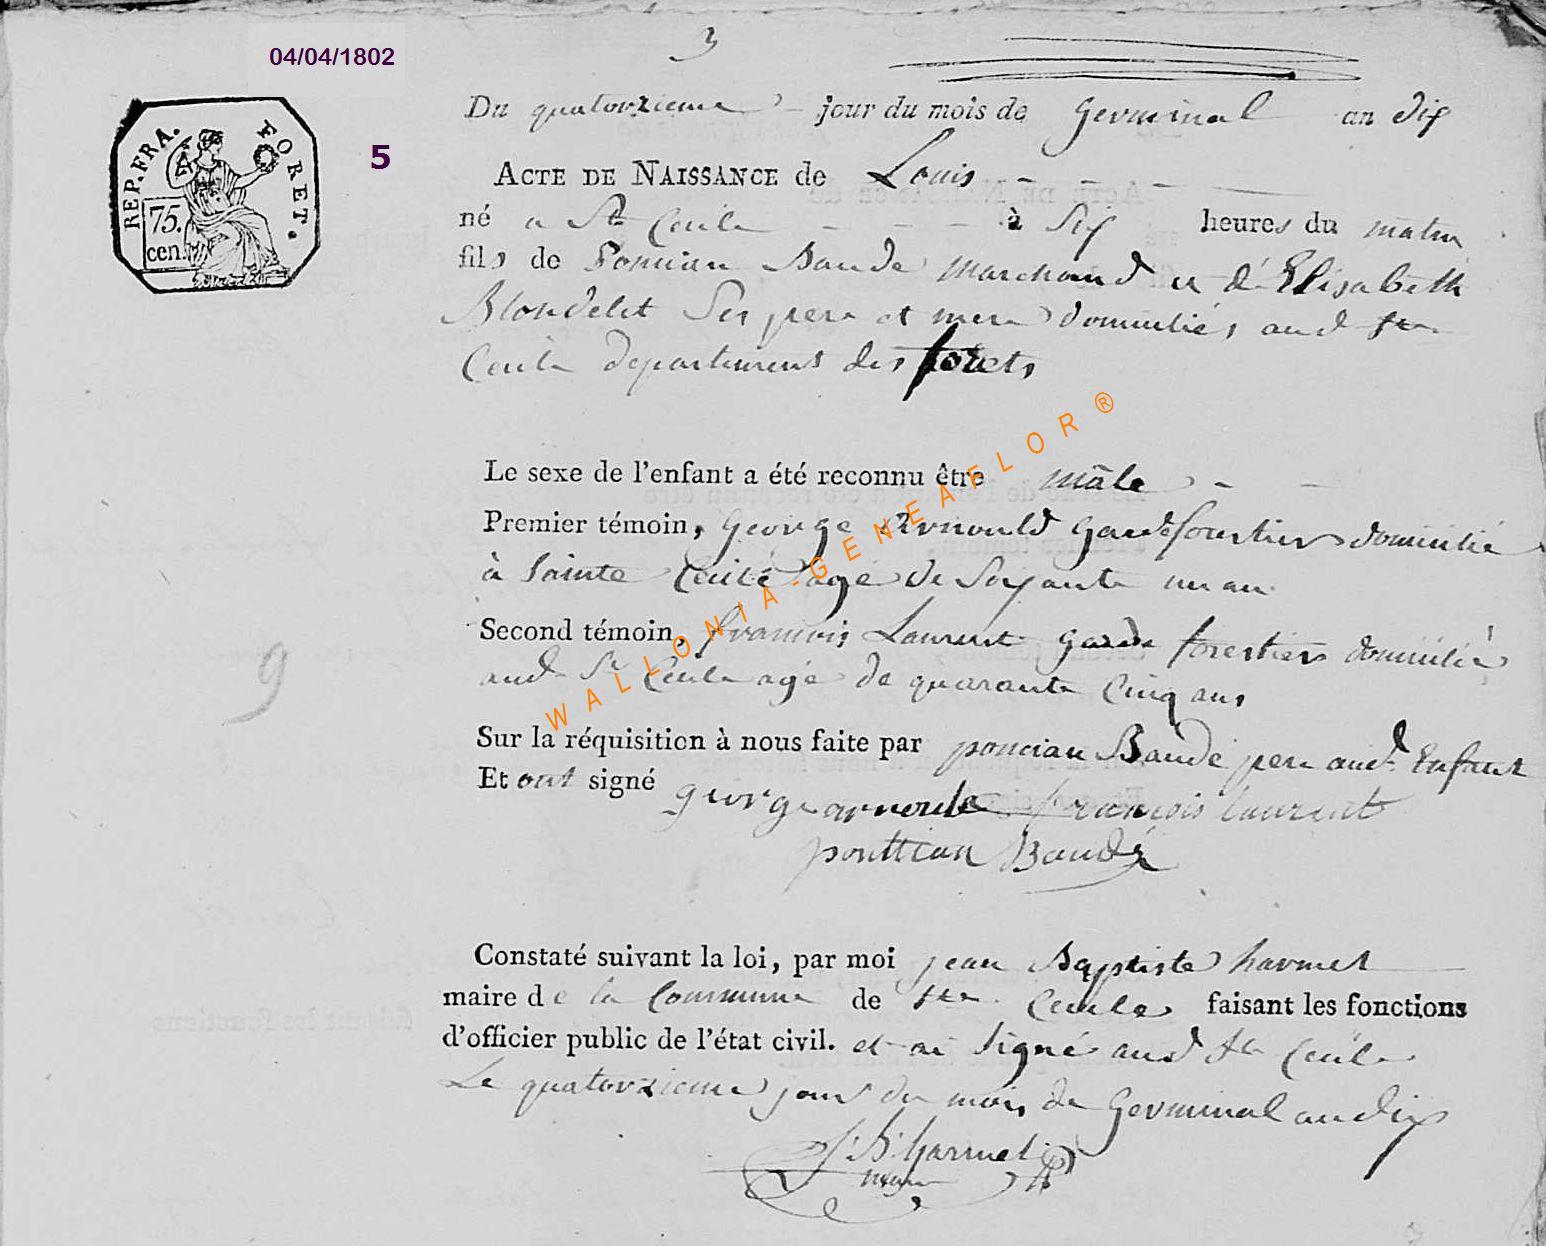 3
04/04/1802
REP. FRA. FORET.
75.
cen.
5
Du quatorzieme jour du mois de Germinal an dix
ACTE DE NAISSANCE de Louis
né a Ste Cecile à Six heures du matin
fils de Poncian Baudé marchand et d'Elisabeth
Blondelet Ses pere et mere domiciliés aud Ste
Cecile departement des forets
Le sexe de l'enfant a été reconnu être mâle
Premier témoin, George Arnould Garde forestier domicilié
à Sainte Cecile agé de Soixante un an
Second témoin, francois Laurent garde forestier domicilié
aud Ste Cecile agé de quarante Cinq ans
Sur la réquisition à nous faite par poncian Baudé pere aud. Enfant
Et ont signé george arnould francois laurent
ponttian Baudé
9
Constaté suivant la loi, par moi jean Baptiste harmel
maire de la Commune de Ste Cecile faisant les fonctions
d'officier public de l'état civil. et ai Signé aud Ste Cecile
Le quatorzieme jour du mois de Germinal an dix
J. B. harmel
WALLONIA-GENEAFLOR ®